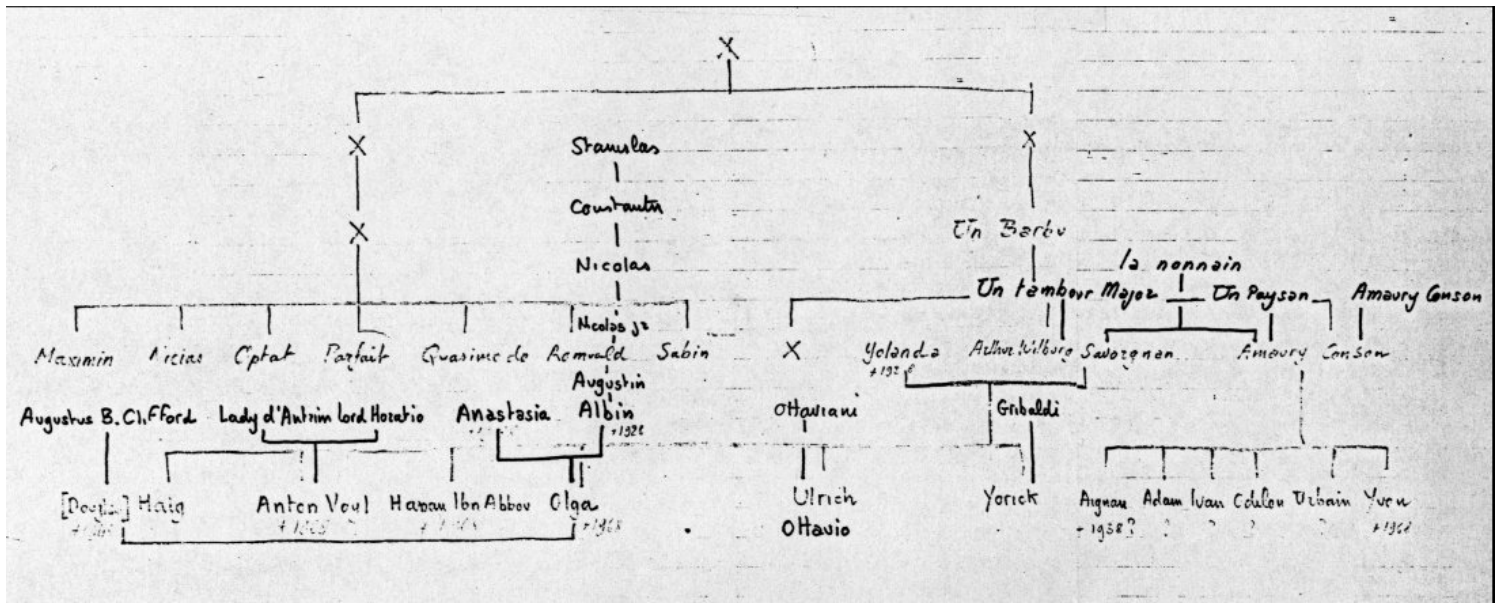 X
X Stanislas X
Constantin
X Un Barbu
Nicolas la nonnain
Un tambour Major Un Paysan Amaury Conson
Nicolas Jr
Maximin Nicias Optat Parfait Quasimodo Romuald Sabin X Yolanda Arthur Wilburg Savorgnan Amaury Conson
Augustin
Augustus B. Clifford Lady d'Antrim Lord Horatio Anastasia Albin Ottaviani Gribaldi
+1928
[Douglas] Haig Anton Voyl Hassan Ibn Abbou Olga Ulrich Yorick Aignan Adam Ivan Odilon Urbain Yvon
+1968 +1968 +1938? ? ? ? ? +1968
Ottavio